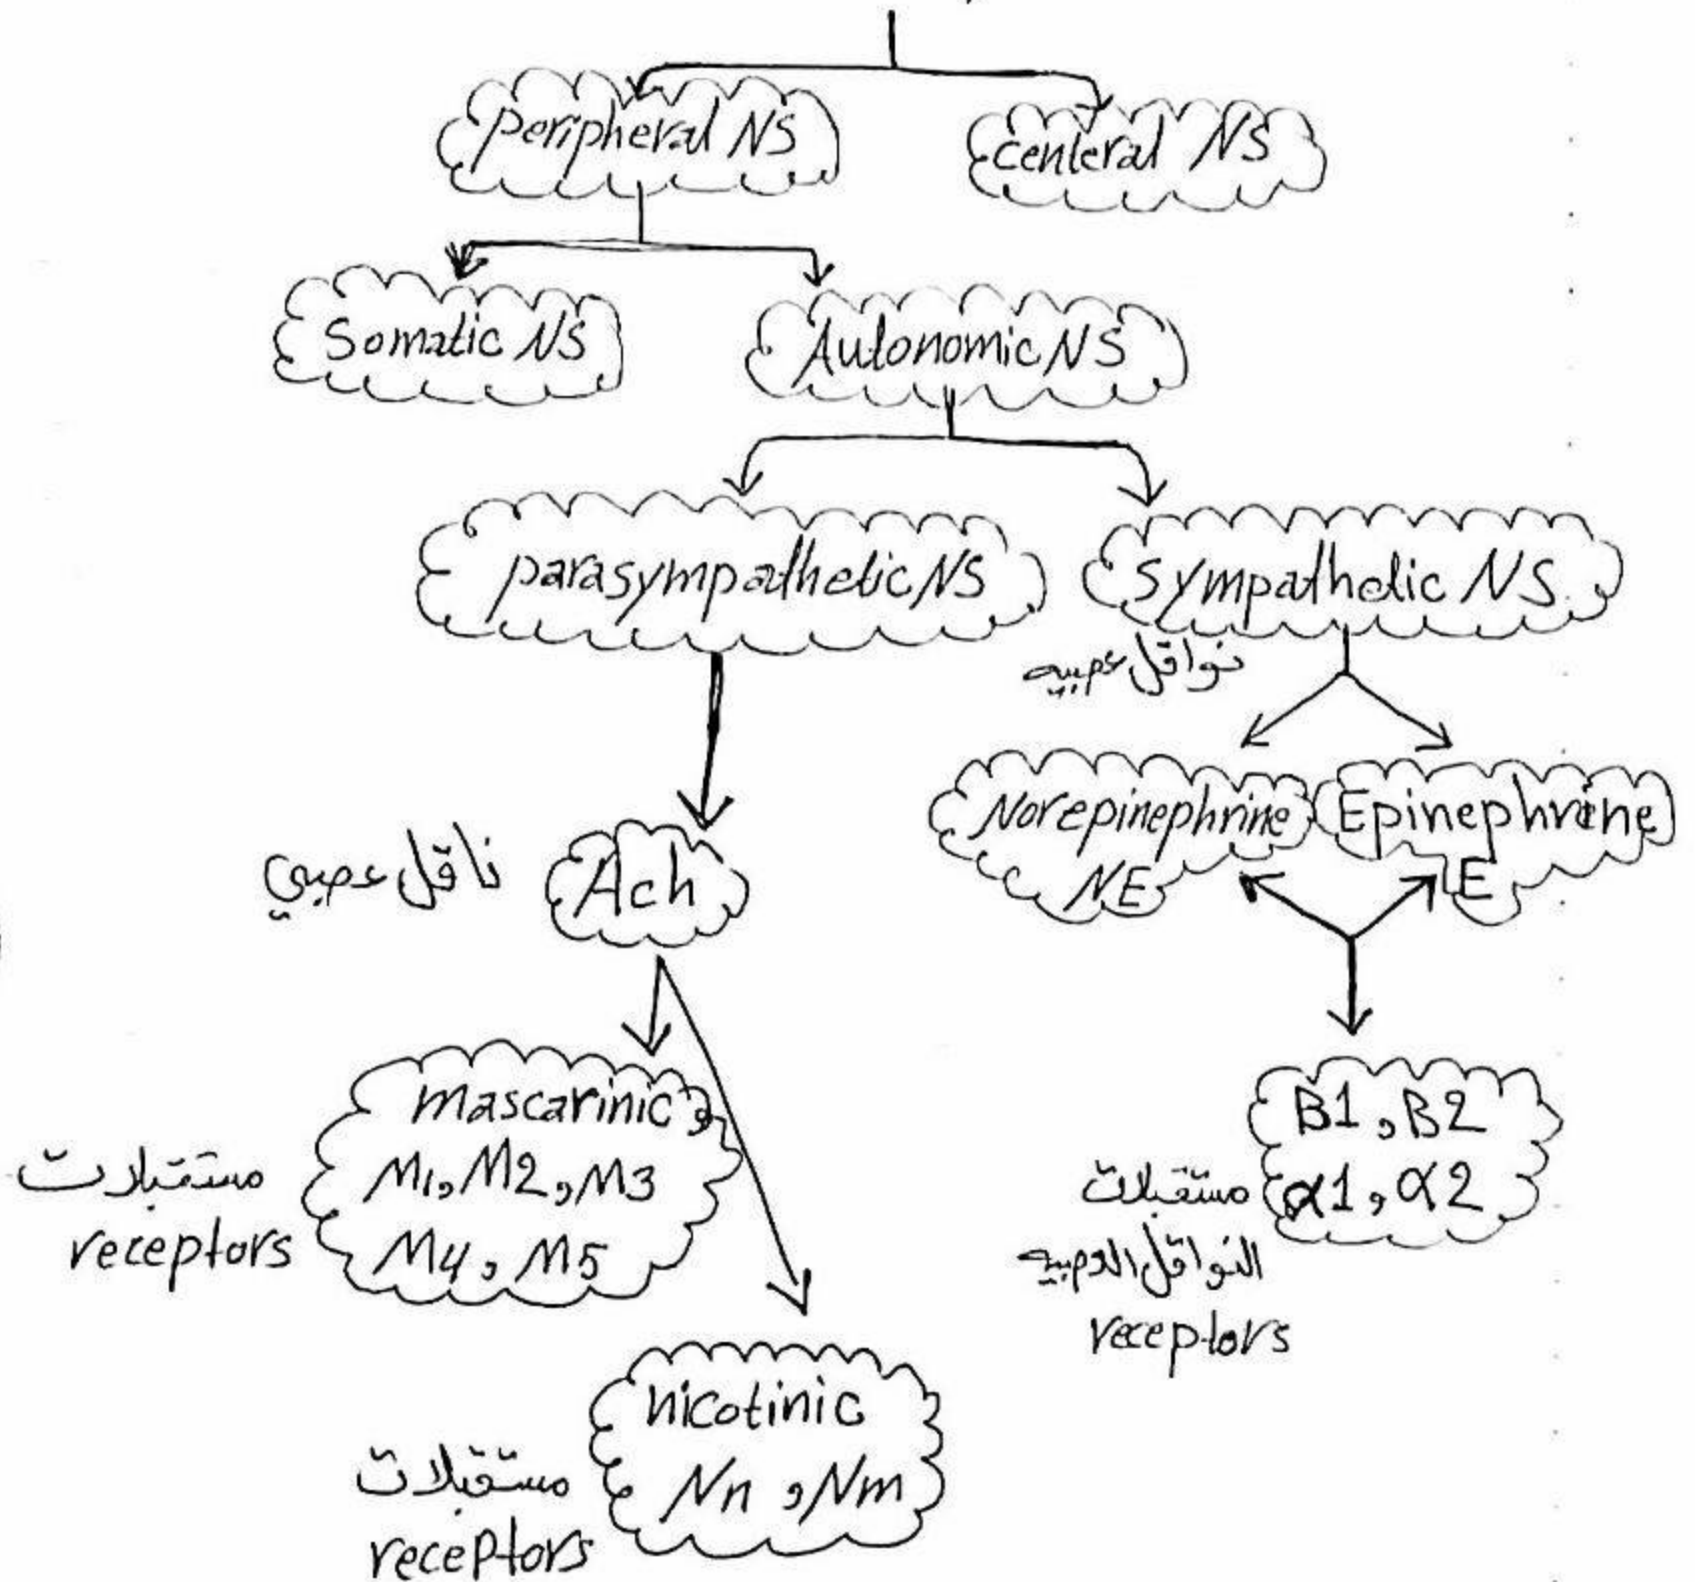 Peripheral NS
Centeral NS
Somatic NS
Autonomic NS
parasympathetic NS
Sympathetic NS
نواقل عصبيه
Norepinephrine
NE
Epinephrine
E
ناقل عصبي
Ach
mascarinic,
M1, M2, M3
M4, M5
مستقبلات
receptors
B1, B2
α1, α2
مستقبلات
النواقل العصبيه
receptors
nicotinic
Nn , Nm
مستقبلات
receptors